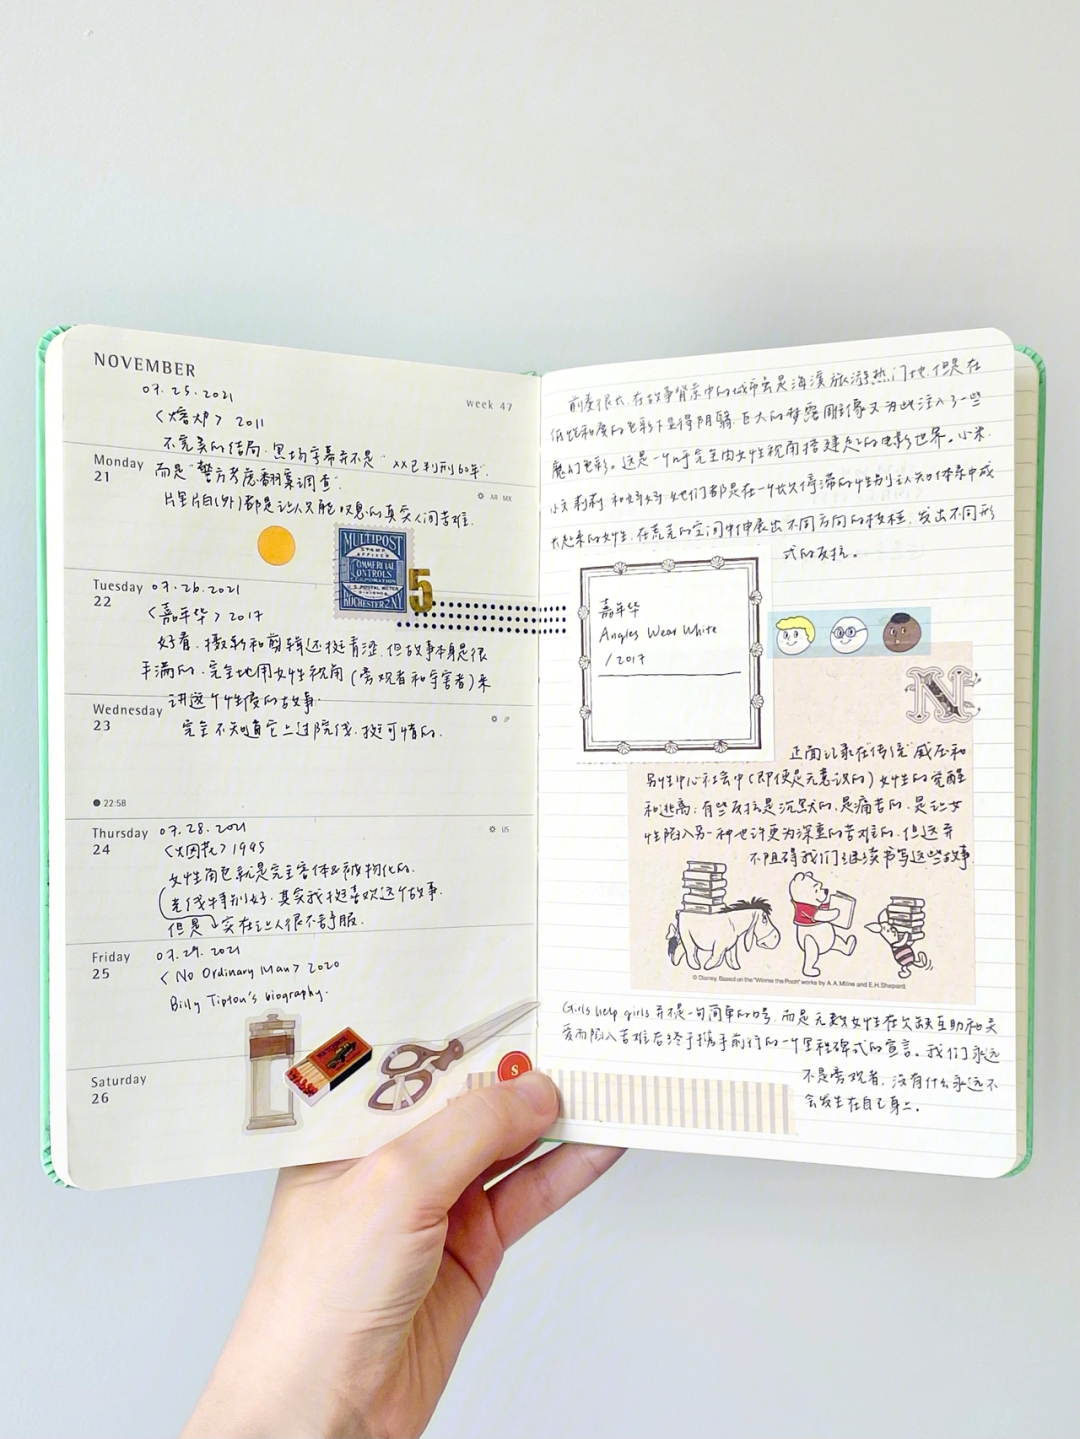 NOVEMBER
week 47
07.25.2021
《熔炉》2011
不完美的结局，黑场字幕并不是"XX已判刑60年"，
Monday
21
而是"警方考虑翻案调查"。
片里片自(外)都是让人只能叹息的真实人间苦难.
AR·MX
MULTIPOST
STAMP
AFFIXER
COMMERCIAL
CONTROLS
CORPORATION
U.S. POSTAL METER
ROCHESTER 2 N.Y.
5
Tuesday
22
07.26.2021
《嘉年华》2017
好看，摄影和剪辑还挺青涩，但故事本身是很
丰满的，完全地用女性视角（旁观者和受害者）来
讲这个性侵的故事.
Wednesday
23
完全不知道它上过院线，挺可惜的.
JP
22:58
Thursday
24
07.28.2021
《火因花》1995
US
女性角色就是完全客体&被物化的.
光线特别好，其实我挺喜欢这个故事.
但是 实在让人很不舒服.
Friday
25
07.29.2021
《No Ordinary Man》2020
Billy Tipton's biography.
Saturday
26
S
在故事背景中的城市会是海滨旅游热门地，但是在
的色彩下显得阴翳，巨大的梦露雕像又为此注入了一些
魔幻色彩。这是一个几乎完全由女性视角搭建起的电影世界。小米，
小文，莉莉和郝，她们都是在一个性别认知体系中成
长起来的女性，在荒芜的空间中伸展出不同方向的枝桠，发出不同形
式的反抗。
嘉年华
Angles Wear White
/2017
N
正面记录在传统威压和
男性中心社会中（即便是无意识的）女性的觉醒
和逃离；有些反抗是沉默的，是痛苦的，是让女
性陷入另一种也许更为深重的苦难的，但这并
不阻碍我们继续书写这些故事
© Disney. Based on the "Winnie the Pooh" works by A.A.Milne and E.H.Shepard.
Girls help girls 并不是一句简单的口号，而是无数女性在欠缺互助和关
爱而陷入苦难后终于携手前行的一个里程碑式的宣言。我们永远
不是旁观者，没有什么永远不
会发生在自己身上。